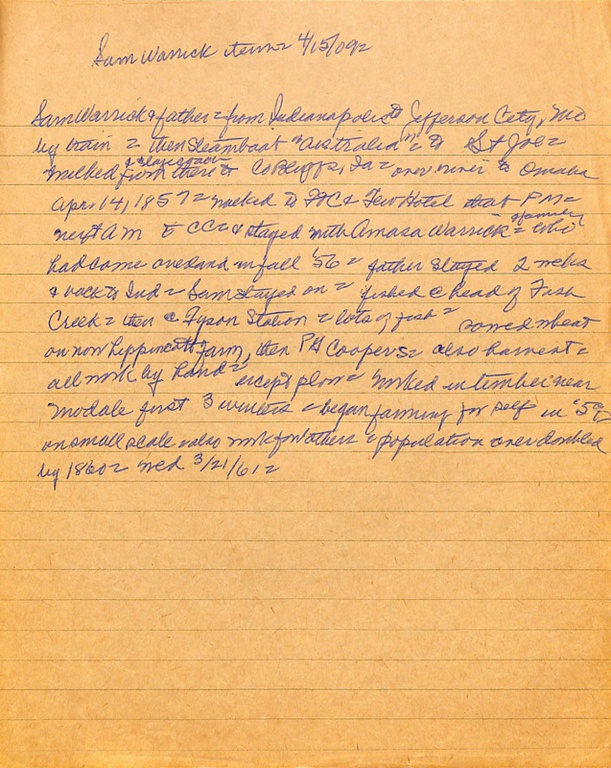 Sam Warrick items = 4/15/09 =
Sam Warrick & father = from Indianapolis to Jefferson City, Mo
by train = then Steamboat "Australia" = to St Joe =
walked & stagecoach from there to Co Bluffs, Ia = over river to Omaha
Apr. 14, 1857 = walked to Ft C & Few Hotel that PM =
next AM to CC = & stayed with Amasa Warrick & family = who
had come overland in fall '56 = father stayed 2 weeks
& back to Ind = Sam stayed on = fished @ head of Fish
Creek = then @ Tyson Station = lots of fish = sowed wheat
on now Lippincott farm, then PG Coopers = also harvest =
all work by hand = except plow = worked in timber near
Modale first 3 winters = began farming for self in '59
on small scale = also work for others = population over doubled
by 1860 = wed 3/21/61 =